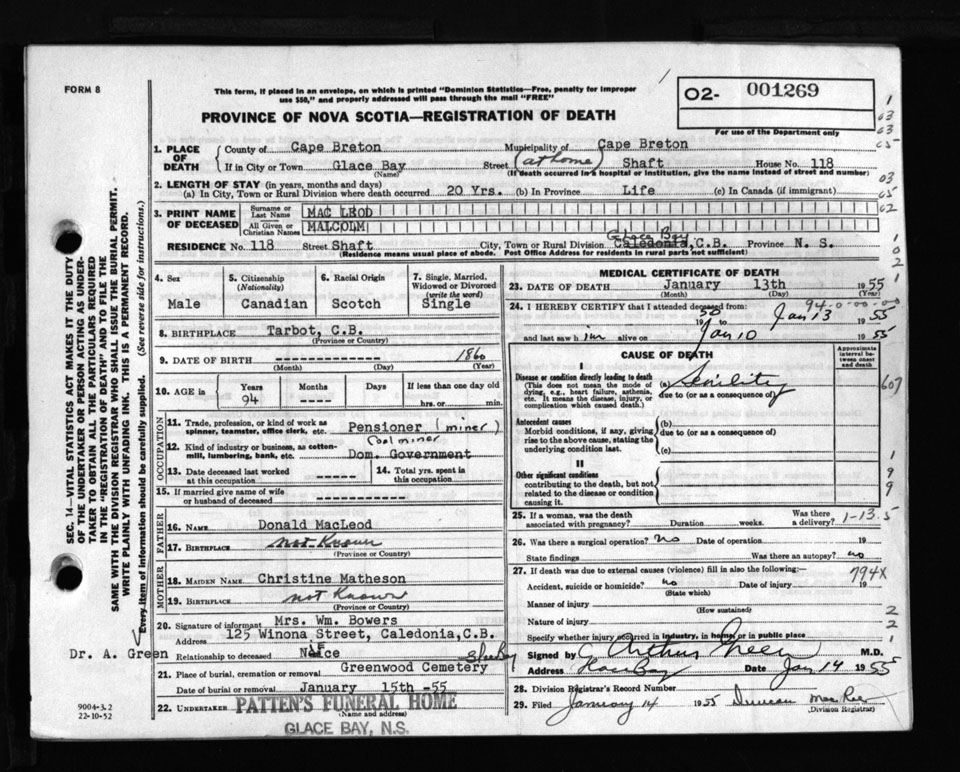 FORM 8
This form, if placed in an envelope, on which is printed "Dominion Statistics—Free, penalty for improper
use $50," and properly addressed will pass through the mail "FREE"
PROVINCE OF NOVA SCOTIA—REGISTRATION OF DEATH
02- 001269
For use of the Department only
1. PLACE OF DEATH
County of Cape Breton Municipality of Cape Breton
If in City or Town Glace Bay Street (at home) Shaft House No. 118
(Name) (If death occurred in a hospital or institution, give the name instead of street and number)
2. LENGTH OF STAY (in years, months and days)
(a) In City, Town or Rural Division where death occurred 20 Yrs. (b) In Province Life (c) In Canada (if immigrant)
3. PRINT NAME OF DECEASED
Surname or Last Name MAC LEOD
All Given or Christian Names MALCOLM
Glace Bay
RESIDENCE No. 118 Street Shaft City, Town or Rural Division Caledonia, C.B. Province N. S.
(Residence means usual place of abode. Post Office Address for residents in rural parts not sufficient)
4. Sex Male
5. Citizenship (Nationality) Canadian
6. Racial Origin Scotch
7. Single, Married, Widowed or Divorced (write the word) Single
8. BIRTHPLACE Tarbot, C.B.
(Province or Country)
9. DATE OF BIRTH 1860
(Month) (Day) (Year)
10. AGE in Years 94 Months ---- Days If less than one day old hrs. or min.
OCCUPATION
11. Trade, profession, or kind of work as spinner, teamster, office clerk, etc. Pensioner (miner)
Coal miner
12. Kind of industry or business, as cotton-mill, lumbering, bank, etc. Dom. Government
13. Date deceased last worked at this occupation -----
14. Total yrs. spent in this occupation
15. If married give name of wife or husband of deceased
FATHER
16. NAME Donald MacLeod
17. BIRTHPLACE not Known
(Province or Country)
MOTHER
18. MAIDEN NAME Christine Matheson
19. BIRTHPLACE not Known
(Province or Country)
20. Signature of informant Mrs. Wm. Bowers
Address 125 Winona Street, Caledonia,C.B.
Dr. A. Green
Relationship to deceased
21. Place of burial, cremation or removal Greenwood Cemetery
Date of burial or removal January 15th -55
22. UNDERTAKER PATTEN'S FUNERAL HOME
(Name and address)
GLACE BAY, N.S.
MEDICAL CERTIFICATE OF DEATH
23. DATE OF DEATH January 13th 1955
(Month) (Day) (Year)
94-0-00-00
24. I HEREBY CERTIFY that I attended deceased from:
1950 to Jan 13 1955
and last saw him alive on Jan 10 1955
CAUSE OF DEATH
Approximate interval between onset and death
I
Disease or condition directly leading to death (a) Senility
(This does not mean the mode of dying, e.g., heart failure, asthenia, etc. It means the disease, injury, or complication which caused death.)
due to (or as a consequence of)
Antecedent causes
Morbid conditions, if any, giving rise to the above cause, stating the underlying condition last.
(b)
due to (or as a consequence of)
(c)
II
Other significant conditions
contributing to the death, but not related to the disease or condition causing it.
25. If a woman, was the death associated with pregnancy? Duration weeks. Was there a delivery? 1-13.5
26. Was there a surgical operation? no Date of operation 19
State findings Was there an autopsy? no
27. If death was due to external causes (violence) fill in also the following: 794X
Accident, suicide or homicide? no Date of injury 19
(State which)
Manner of injury
(How sustained)
Nature of injury
Specify whether injury occurred in industry, in home, or in public place
Signed by Arthur Green M.D.
Address Glace Bay Date Jan 14 1955
28. Division Registrar's Record Number
29. Filed January 14 1955 Duncan MacRae
(Division Registrar)
SEC. 14—VITAL STATISTICS ACT MAKES IT THE DUTY
OF THE UNDERTAKER OR PERSON ACTING AS UNDER-
TAKER TO OBTAIN ALL THE PARTICULARS REQUIRED
IN THE "REGISTRATION OF DEATH" AND TO FILE THE
SAME WITH THE DIVISION REGISTRAR WHO SHALL ISSUE THE BURIAL PERMIT.
WRITE PLAINLY WITH UNFADING INK. THIS IS A PERMANENT RECORD.
Every item of information should be carefully supplied. (See reverse side for instructions.)
9004-3.2
22-10-52